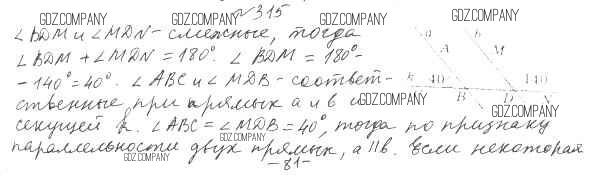 №315
GDZ.COMPANY GDZ.COMPANY GDZ.COMPANY
∠BDM и ∠MDN - смежные, тогда
∠BDM + ∠MDN = 180°. ∠BDM = 180°-
GDZ.COMPANY
- 140° = 40°. ∠ABC и ∠MDB - соответ-
ственные при прямых a и b и
GDZ.COMPANY
секущей k. ∠ABC = ∠MDB = 40°, тогда по признаку
GDZ.COMPANY
параллельности двух прямых, a || b. Если некоторая
GDZ.COMPANY
-81-
a b
A M
k 40 140
B D
GDZ.COMPANY
GDZ.COMPANY